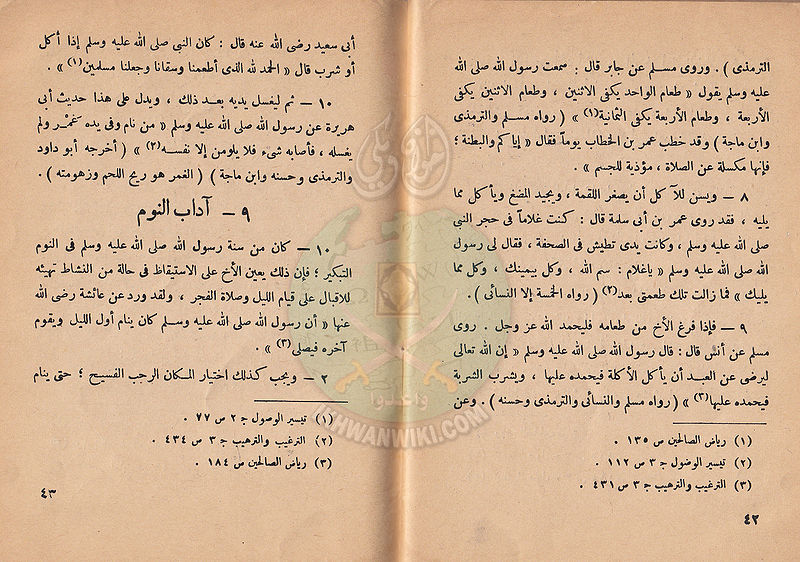 الترمذى ) . وروى مسلم عن جابر قال : سمعت رسول الله صلى الله
عليه وسلم يقول « طعام الواحد يكفى الاثنين ، وطعام الاثنين يكفى
الأربعة ، وطعام الأربعة يكفى الثمانية (١) » ( رواه مسلم والترمذى
وابن ماجة ) وقد خطب عمر بن الخطاب يوماً فقال « إياكم والبطنة ؛
فإنها مكسلة عن الصلاة ، مؤذية للجسم » .
٨ – ويسن للآكل أن يصغر اللقمة ، ويجيد المضغ ويأكل مما
يليه ، فقد روى عمر بن أبى سلمة قال : كنت غلاماً فى حجر النبى
صلى الله عليه وسلم ، وكانت يدى تطيش فى الصحفة ، فقال لى رسول
الله صلى الله عليه وسلم « ياغلام : سم الله ، وكل بيمينك ، وكل مما
يليك » فما زالت تلك طعمتى بعد (٢) ( رواه الخمسة إلا النسائى ) .
٩ – فإذا فرغ الأخ من طعامه فليحمد الله عز وجل . روى
مسلم عن أنس قال : قال رسول الله صلى الله عليه وسلم « إن الله تعالى
ليرضى عن العبد أن يأكل الأكلة فيحمده عليها ، ويشرب الشربة
فيحمده عليها (٣) » ( رواه مسلم والنسائى والترمذى وحسنه ) . وعن
(١) رياض الصالحين ص ١٣٥ .
(٢) تيسير الوصول ج ٣ ص ١١٢ .
(٣) الترغيب والترهيب ج ٣ ص ٤٣١ .
٤٢
أبى سعيد رضى الله عنه قال : كان النبى صلى الله عليه وسلم إذا أكل
أو شرب قال « الحمد لله الذى أطعمنا وسقانا وجعلنا مسلمين (١) » .
١٠ – ثم ليغسل يديه بعد ذلك ، ويدل على هذا حديث أبى
هريرة عن رسول الله صلى الله عليه وسلم « من نام وفى يده غمر ولم
يغسله ، فأصابه شىء فلا يلومن إلا نفسه (٢) » ( أخرجه أبو داود
والترمذى وحسنه وابن ماجة ) ( الغمر هو ريح اللحم وزهومته ) .
٩ – آداب النوم
١٠ – كان من سنة رسول الله صلى الله عليه وسلم فى النوم
التبكير ؛ فإن ذلك يعين الأخ على الاستيقاظ فى حالة من النشاط تهيئه
للاقبال على قيام الليل وصلاة الفجر ، ولقد ورد عن عائشة رضى الله
عنها « أن رسول الله صلى الله عليه وسلم كان ينام أول الليل ويقوم
آخره فيصلى (٣) » .
٢ – ويجب كذلك اختيار المكان الرحب الفسيح ؛ حتى ينام
(١) تيسير الوصول ج ٢ ص ٧٧ .
(٢) الترغيب والترهيب ج ٣ ص ٤٣٤ .
(٣) رياض الصالحين ص ١٨٤ .
٤٣
وأعدوا
IKHWANWIKI.COM